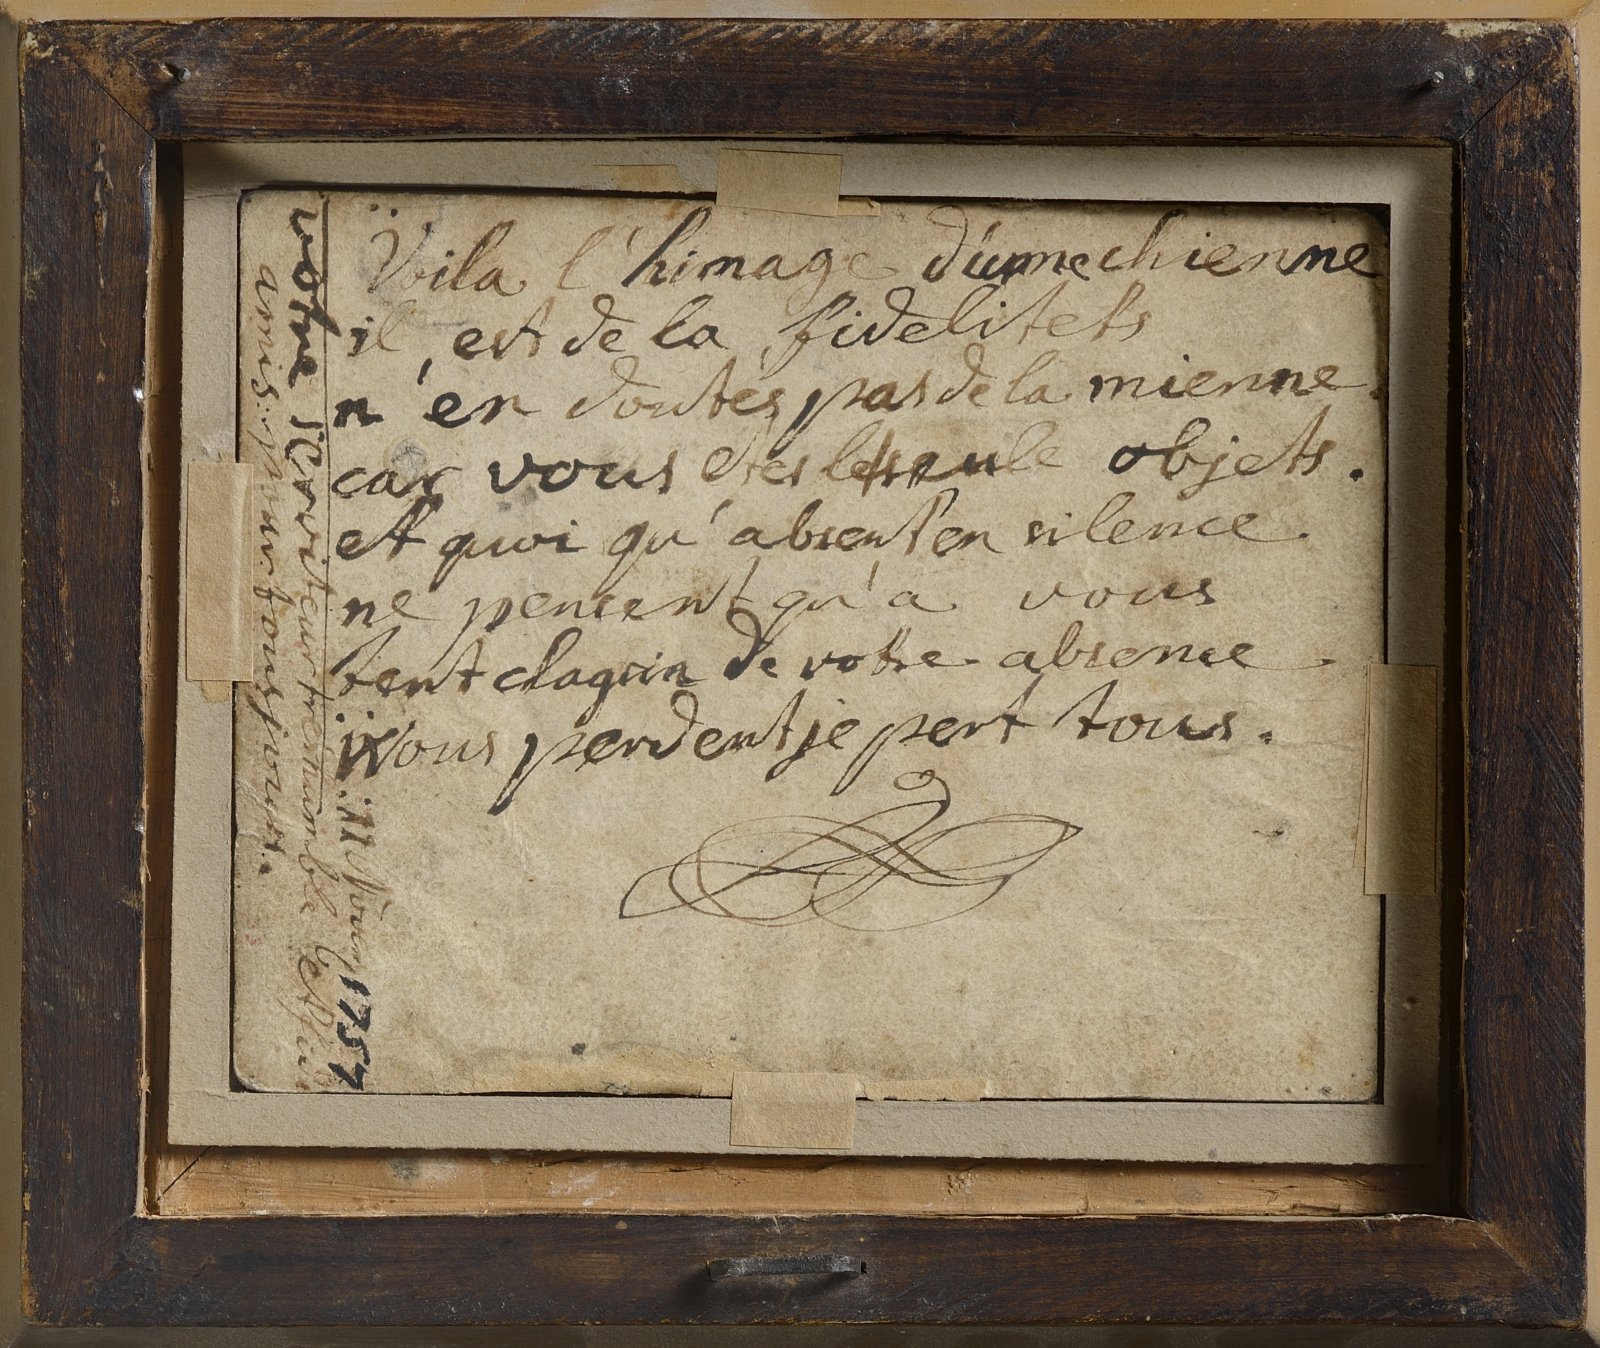 Voila l'himage d'une chienne
il est de la fidelitets
n'en doutés pas de la mienne.
car vous etes le seule objets.
et quoi qu'absent en silence.
ne pencent qu'a vous
tent chagrin de votre absence.
Vous perdent je pert tous.
11 1757
votre serviteur tres humble et
amis: pour tousjours.